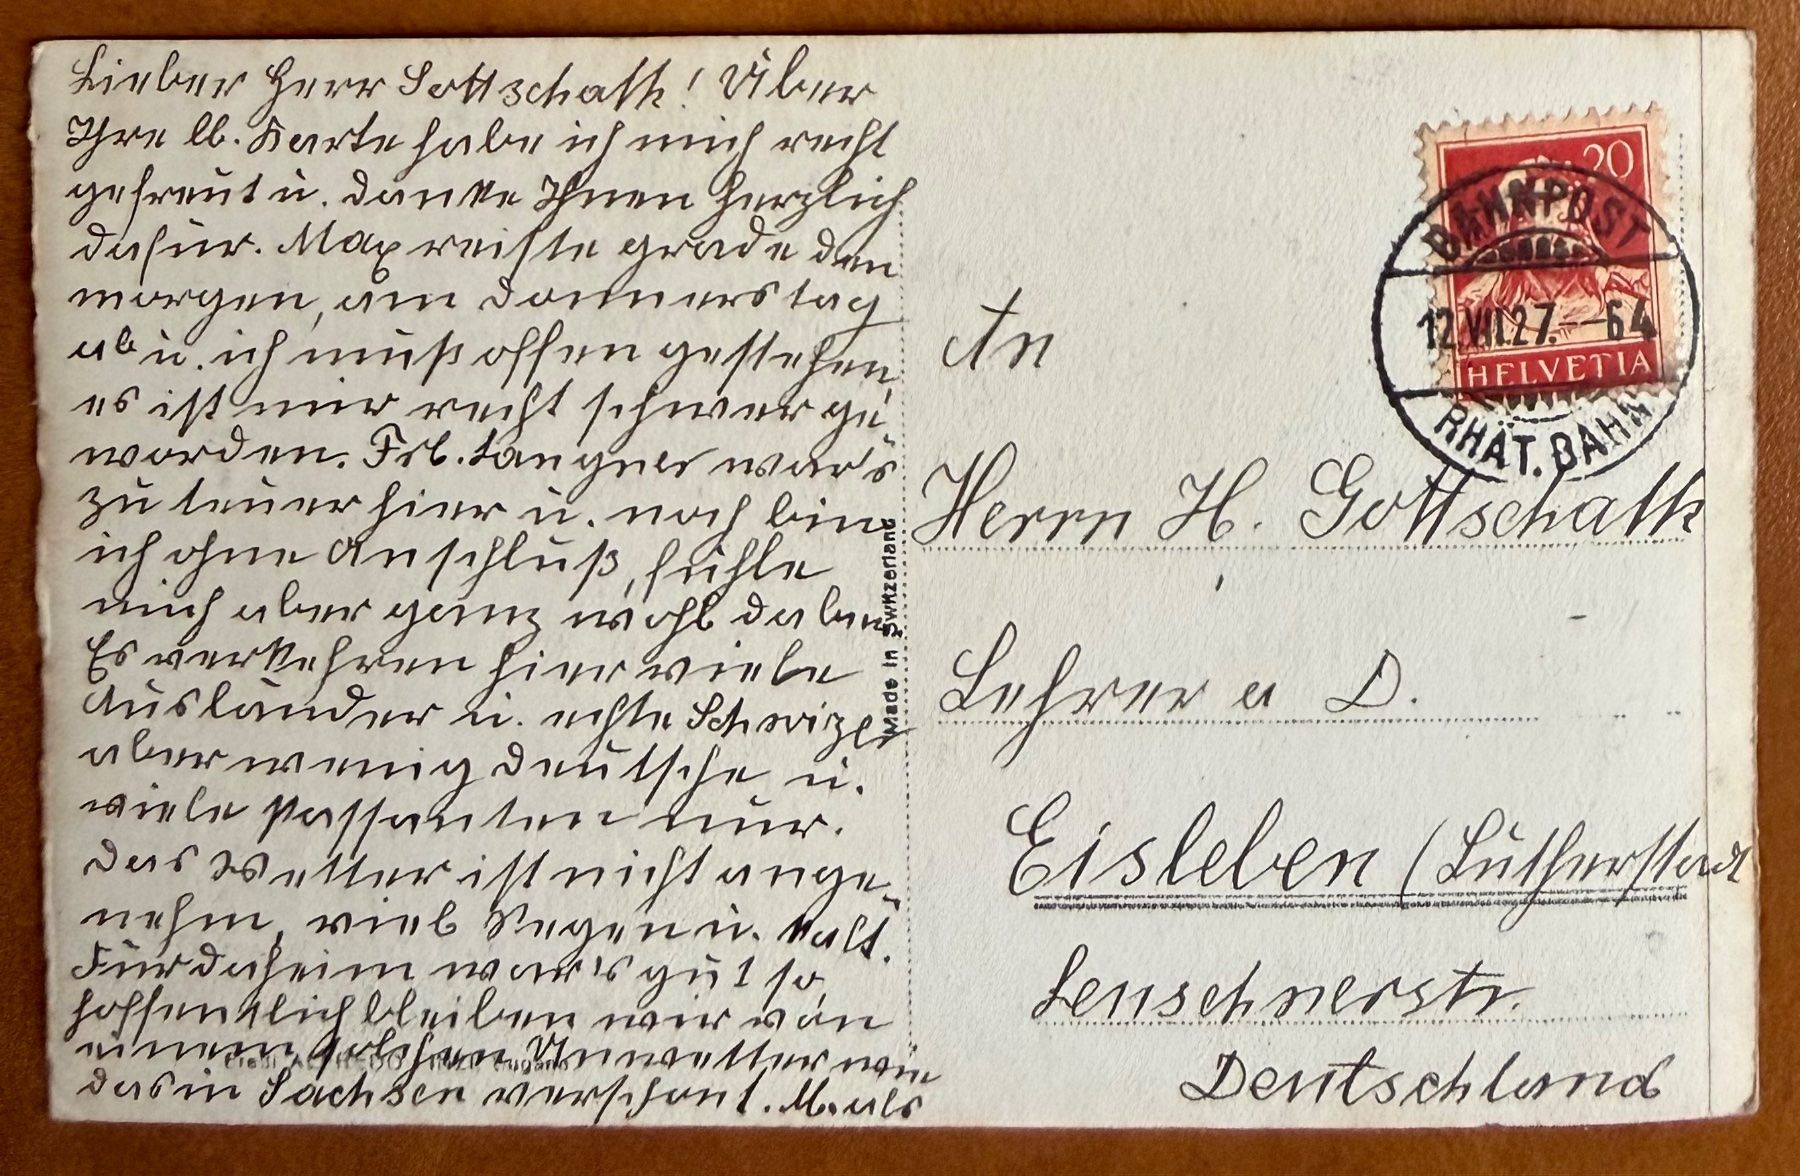 Lieber Herr Gottschalk! Über
Ihre lb. Karte habe ich mich recht
gefreut u. danke Ihnen herzlich
dafür. Max reiste grade den
morgen, am Donnerstag
ab u. ich muß offen gestehen,
es ist mir recht schwer ge-
worden. Frb. war's
zu teuer hier u. noch bin
ich ohne Anschluß, fühle
mich aber ganz wohl dabei.
Es verkehren hier viele
Ausländer u. echte Schwizer
aber wenig deutsche u.
viele Passanten nur.
Das Wetter ist nicht ange-
nehm, viel Regen u. kalt.
Für daheim war's gut so,
hoffentlich bleiben wir von
einem solchen Unwetter wie
das in Sachsen verschont. M. als
Made in Switzerland
20
HELVETIA
BAHNPOST
12.VII.27.-64
RHÄT. BAHN
An
Herrn H. Gottschalk
Lehrer a D.
Eisleben (Lutherstadt
Lenschnerstr.
Deutschland